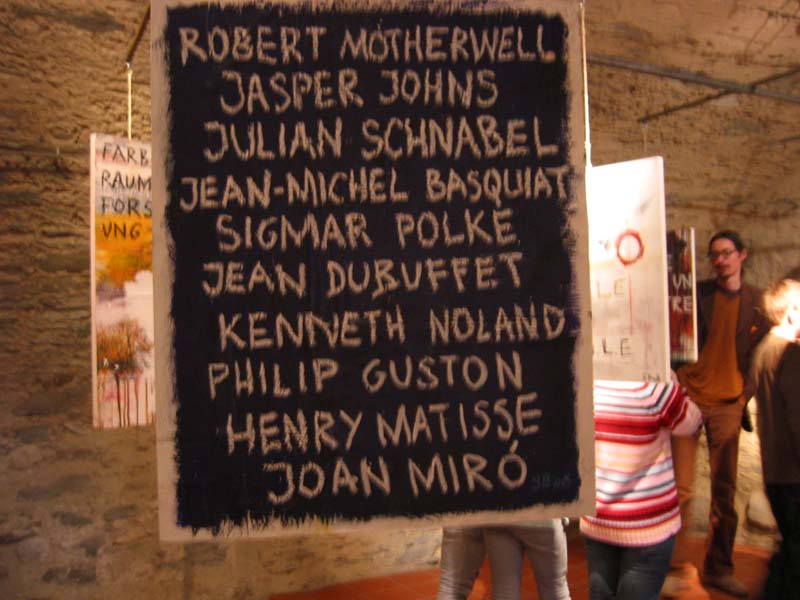 ROBERT MOTHERWELL
JASPER JOHNS
JULIAN SCHNABEL
JEAN-MICHEL BASQUIAT
SIGMAR POLKE
JEAN DUBUFFET
KENNETH NOLAND
PHILIP GUSTON
HENRY MATISSE
JOAN MIRÓ
FARB
RAUM
FORS
UNG
O
LE
LE
UN
TRE